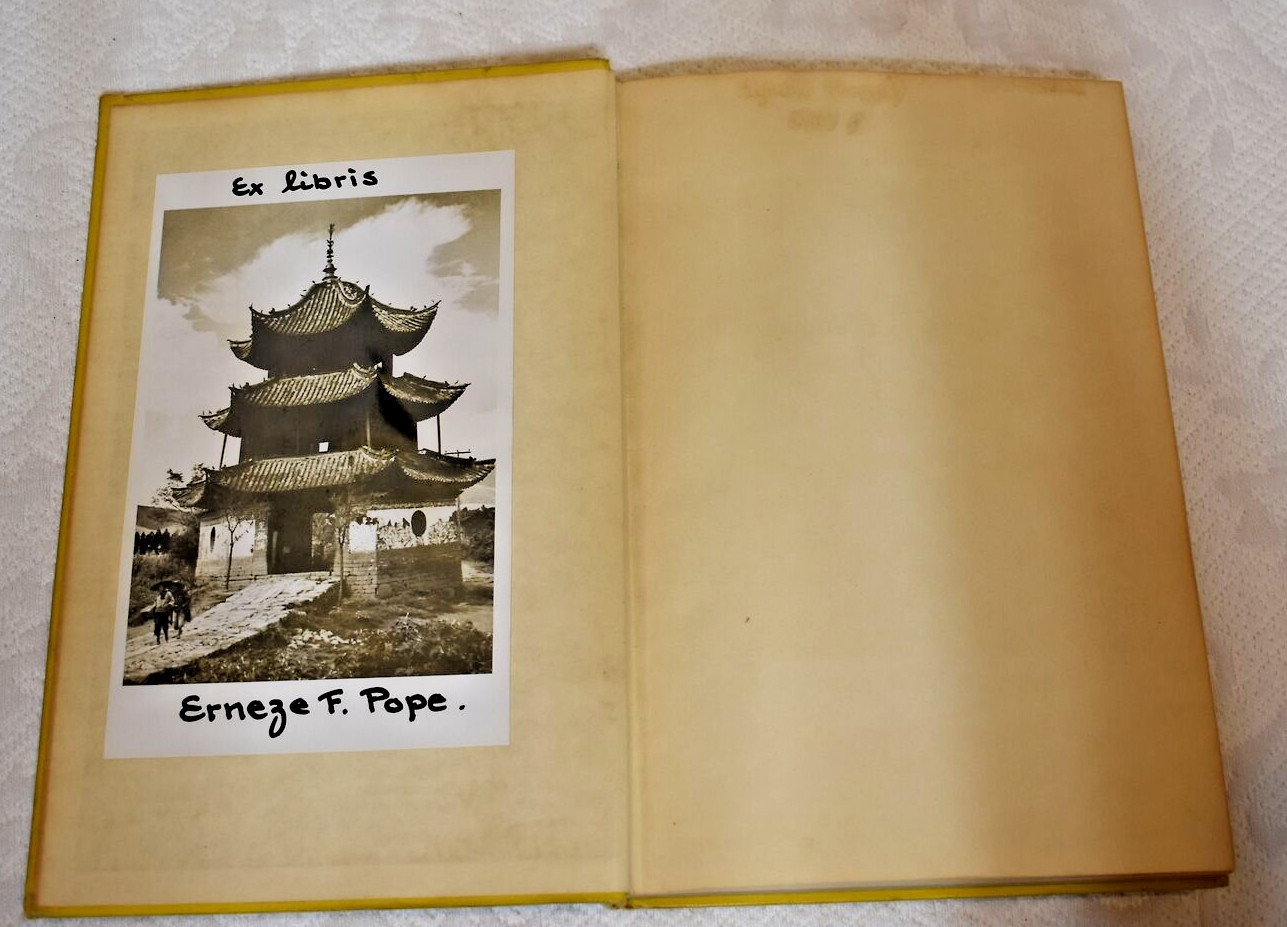 Ex libris
Erneze F. Pope.